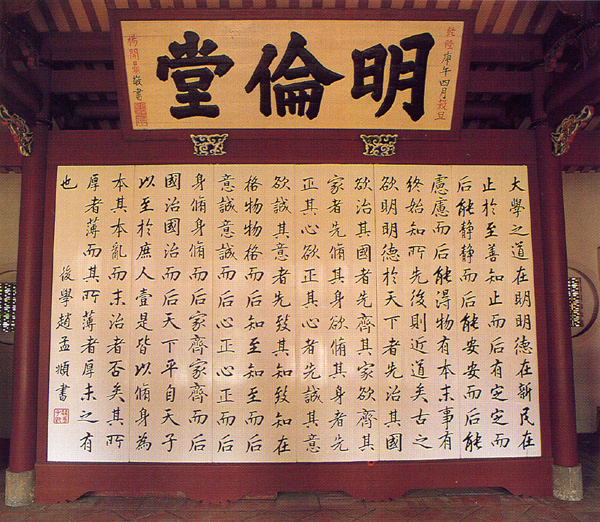 乾隆庚午四月穀旦
明倫堂
楊開鼎敬書
大學之道在明明德在新民在
止於至善知止而后有定定而
后能静静而后能安安而后能
慮慮而后能得物有本末事有
終始知所先後則近道矣古之
欲明明德於天下者先治其國
欲治其國者先齊其家欲齊其
家者先脩其身欲脩其身者先
正其心欲正其心者先誠其意
欲誠其意者先致其知致知在
格物物格而后知至知至而后
意誠意誠而后心正心正而后
身脩身脩而后家齊家齊而后
國治國治而后天下平自天子
以至於庶人壹是皆以脩身為
本其本亂而末治者否矣其所
厚者薄而其所薄者厚未之有
也
後學趙孟頫書